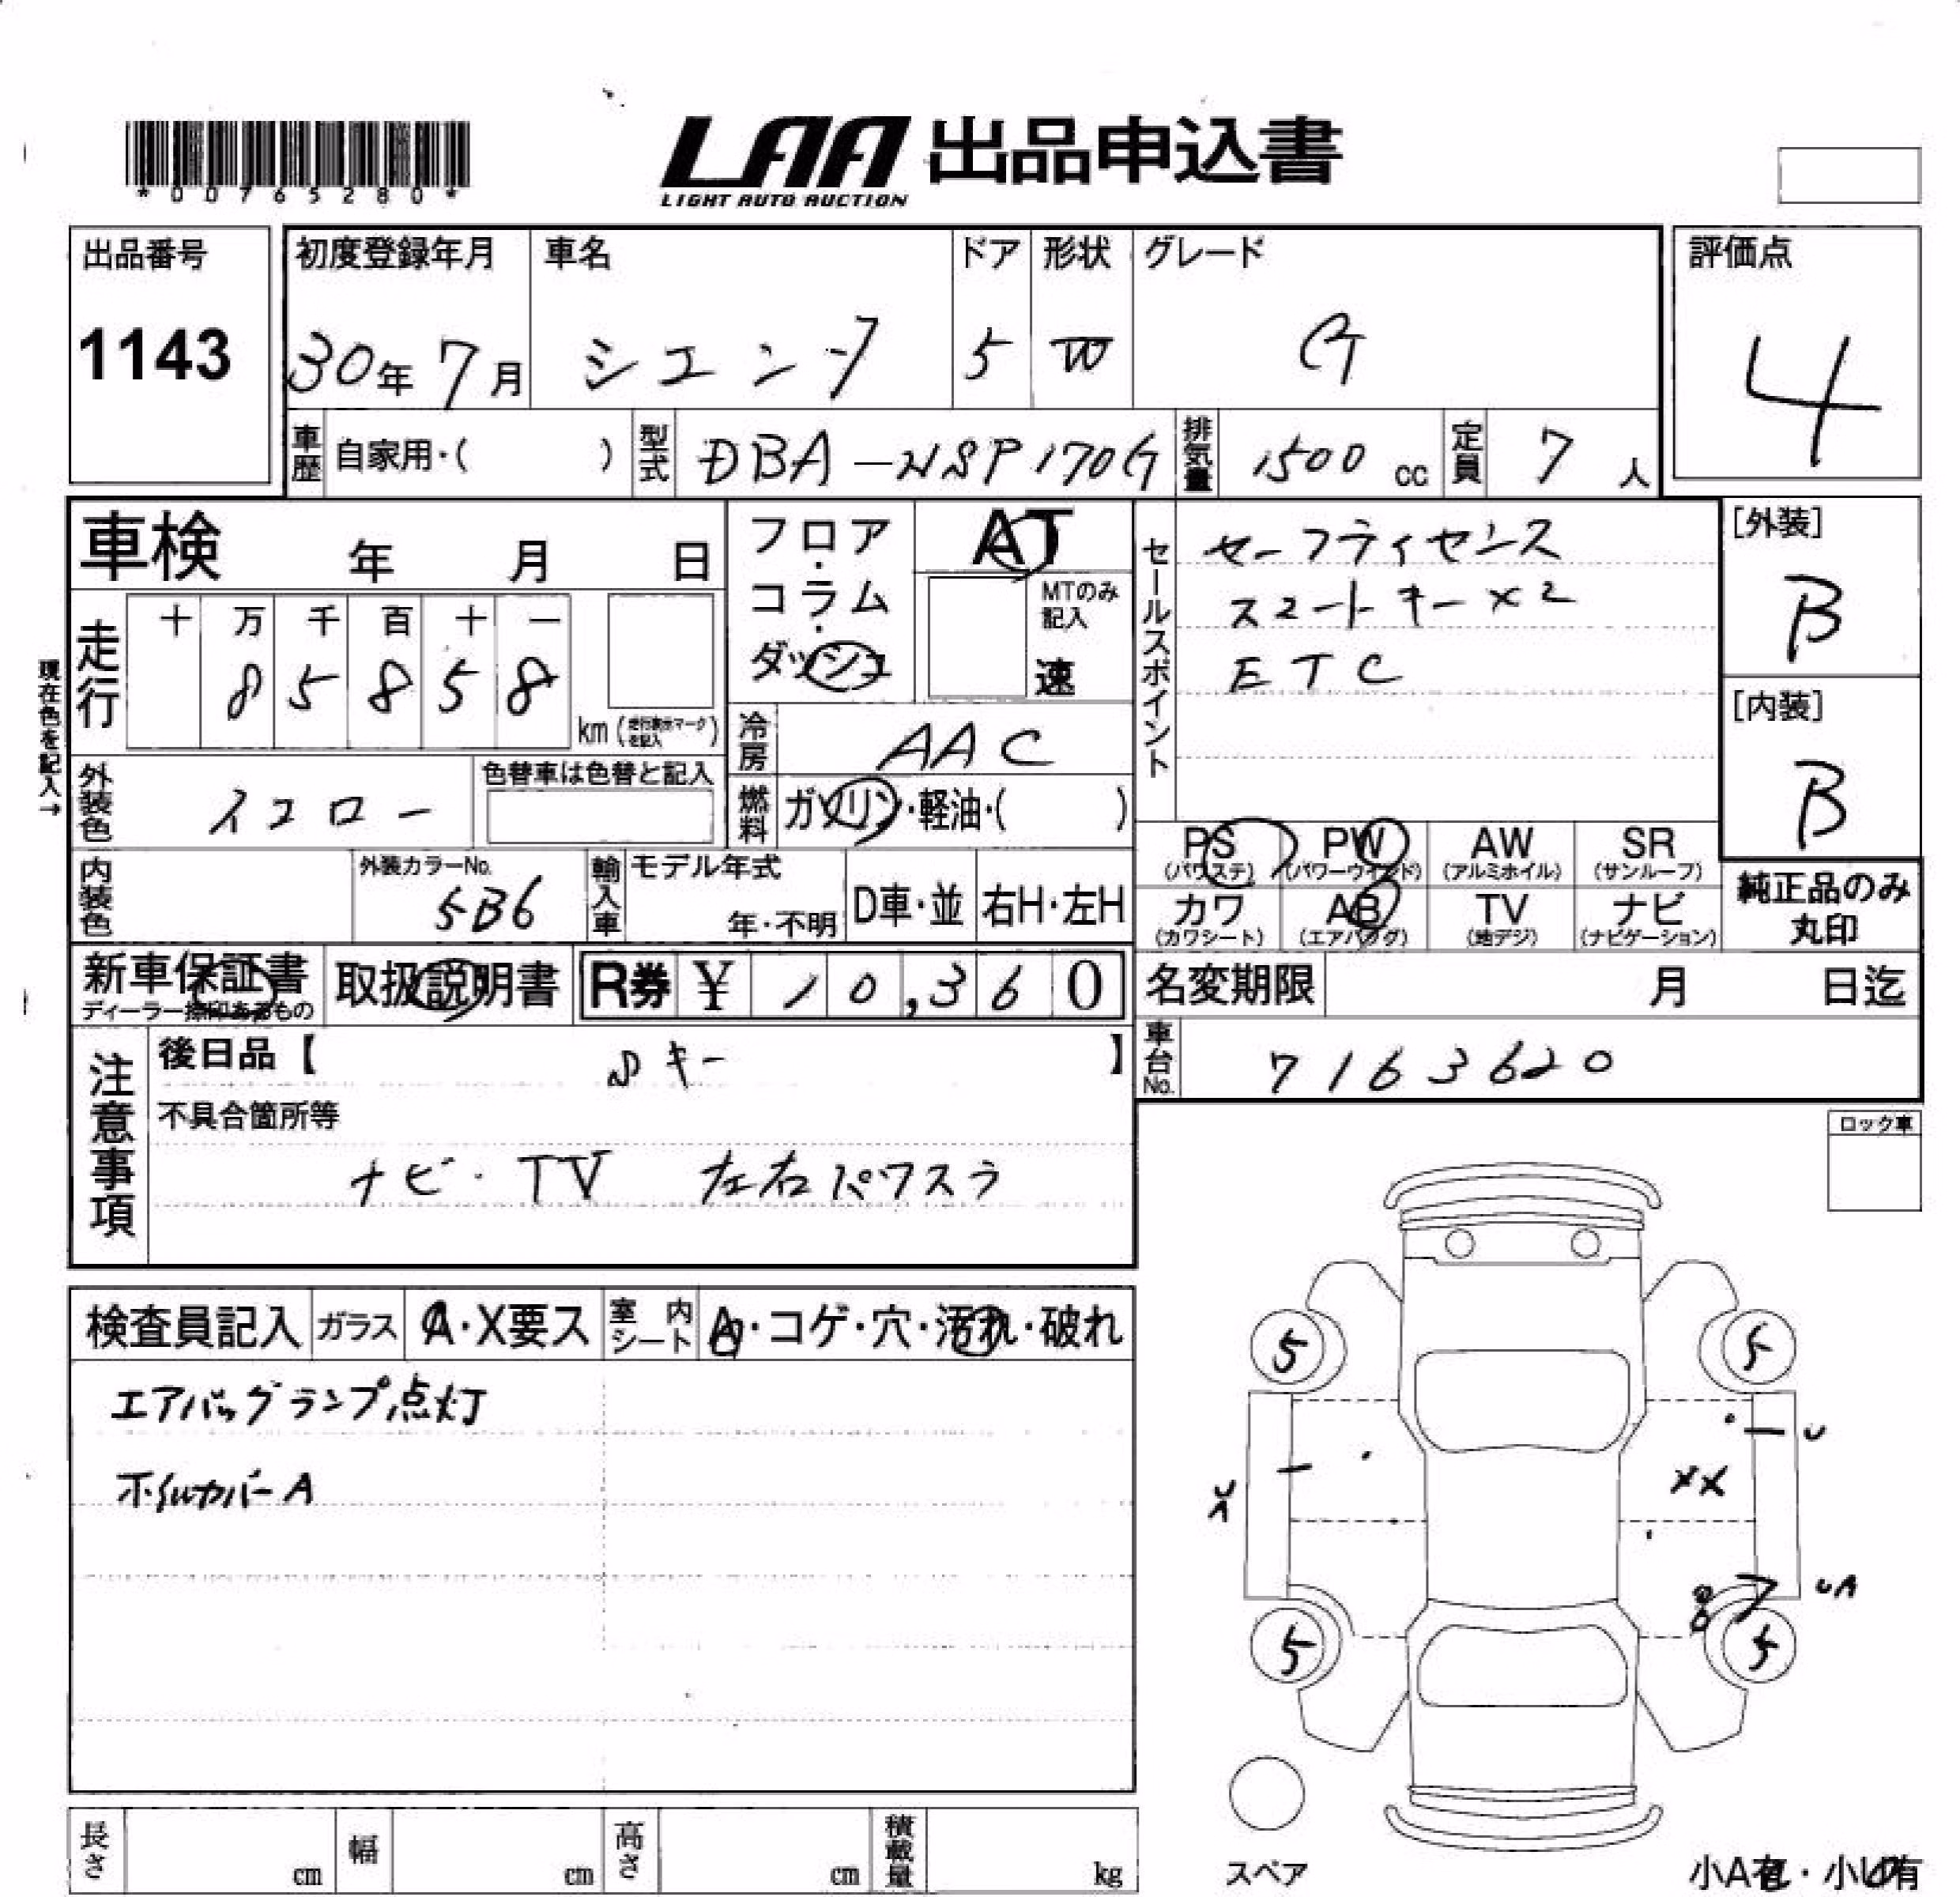 *00765280*
LAA 出品申込書
LIGHT AUTO AUCTION
出品番号
1143
初度登録年月
30年7月
車名
シエンタ
ドア
5
形状
W
グレード
G
評価点
4
車歴
自家用・( )
型式
DBA-NSP170G
排気量
1500 cc
定員
7 人
車検 年 月 日
フロア・コラム・ダッシュ
AT
MTのみ記入
速
セールスポイント
セーフティセンス
スマートキー×2
ETC
[外装]
B
[内装]
B
現在色を記入→
走行
十 万 千 百 十 一
8 5 8 5 8
km(走行表示マークを記入)
冷房
AAC
外装色
イエロー
色替車は色替と記入
燃料
ガソリン・軽油・( )
PS
(パワステ)
PW
(パワーウインド)
AW
(アルミホイル)
SR
(サンルーフ)
カワ
(カワシート)
AB
(エアバッグ)
TV
(地デジ)
ナビ
(ナビゲーション)
純正品のみ
丸印
内装色
外装カラーNo.
5B6
輸入車
モデル年式
年・不明
D車・並
右H・左H
新車保証書
ディーラー捺印あるもの
取扱説明書
R券 ¥ 10,360
名変期限 月 日迄
車台No.
7163620
注意事項
後日品【 Sキー 】
不具合箇所等
ナビ・TV 左右パワスラ
ロック車
検査員記入
ガラス
A・X要ス
室内シート
A・コゲ・穴・汚れ・破れ
エアバッグランプ点灯
ホイルカバーA
5
5
U
XX
UA
5
5
スペア
長さ cm
幅 cm
高さ cm
積載量 kg
小A有・小U有